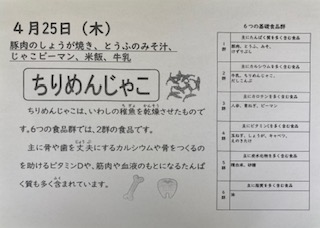 4月25日（木）
豚肉のしょうが焼き、とうふのみそ汁、
じゃこピーマン、米飯、牛乳
ちりめんじゃこ
ちりめんじゃこは、いわしの稚魚を乾燥させたもので
す。6つの食品群では、2群の食品です。
主に骨や歯を丈夫にするカルシウムや骨をつくるの
を助けるビタミンDや、筋肉や血液のもとになるたんぱ
く質も多く含まれています。
6つの基礎食品群
主にたんぱく質を多く含む食品
1群
豚肉、とうふ、みそ、
主にカルシウムを多く含む食品
2群
牛乳、ちりめんじゃこ、
主にカロテンを多く含む食品
3群
人参、青ねぎ、ピーマン
主にビタミンCを多く含む食品
4群
玉ねぎ、しょうが、キャベツ、
えのきたけ
主に炭水化物を多く含む食品
5群
精白米、砂糖
主に脂質を多く含む食品
6群
油